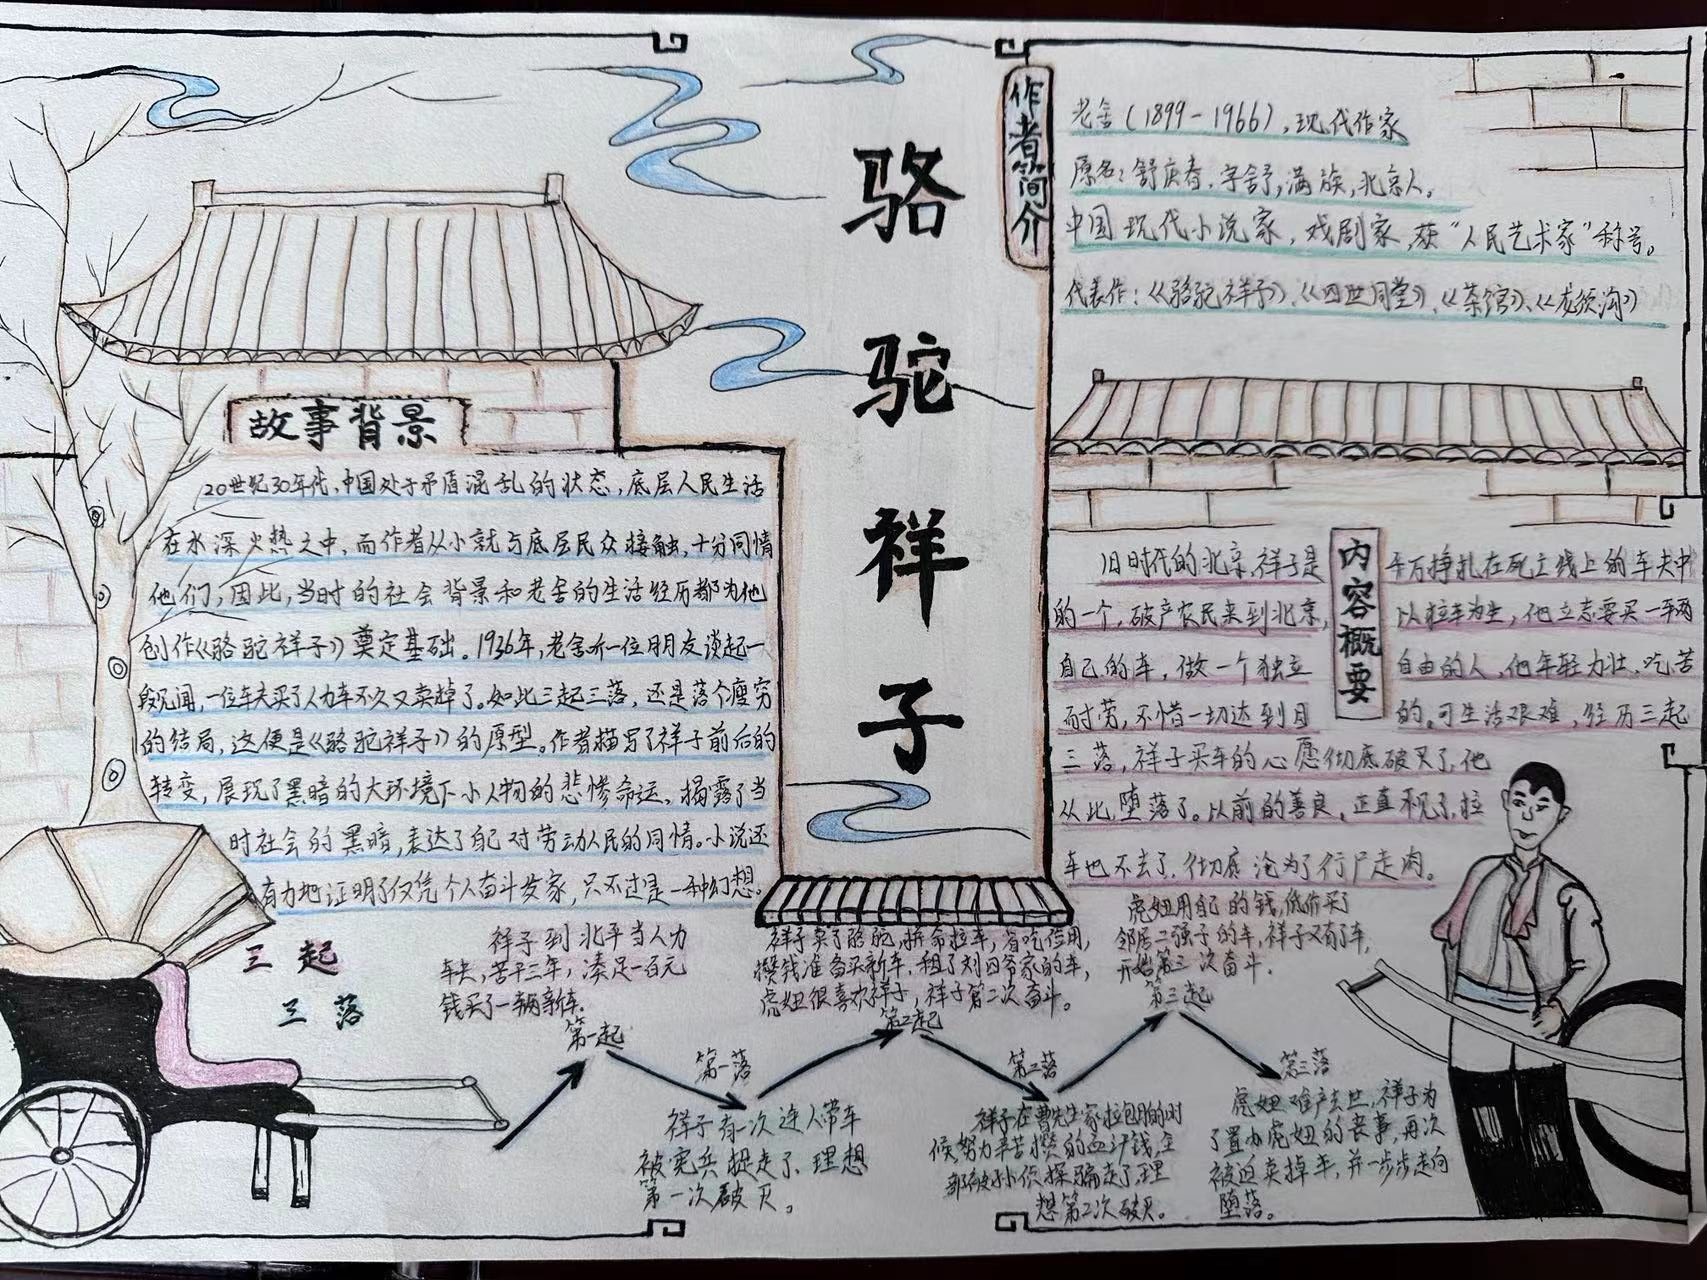 骆驼祥子
作者简介
老舍（1899-1966），现代作家
原名：舒庆春，字舍予，满族，北京人。
中国现代小说家，戏剧家，获“人民艺术家”称号。
代表作：《骆驼祥子》、《四世同堂》、《茶馆》、《龙须沟》
故事背景
20世纪30年代，中国处于矛盾混乱的状态，底层人民生活
在水深火热之中，而作者从小就与底层民众接触，十分同情
他们，因此，当时的社会背景和老舍的生活经历都为他
创作《骆驼祥子》奠定基础。1936年，老舍听一位朋友谈起一
段见闻，一位车夫买了人力车不久又卖掉了。如此三起三落，还是落个瘦穷
的结局，这便是《骆驼祥子》的原型。作者描写了祥子前后的
转变，展现了黑暗的大环境下小人物的悲惨命运，揭露了当
时社会的黑暗，表达了自己对劳动人民的同情。小说还
有力地证明了仅凭个人奋斗发家，只不过是一种幻想。
内容概要
旧时代的北京，祥子是千万挣扎在死亡线上的车夫中
的一个，破产农民来到北京，以拉车为生，他立志要买一车两
自己的车，做一个独立自由的人，他年轻力壮、吃苦
耐劳，不惜一切达到目的。可生活艰难，经历三起
三落，祥子买车的心愿彻底破灭了，他
从此堕落了。以前的善良、正直不见了，拉
车也不去了，彻底沦为了行尸走肉。
三起
三落
祥子到北平当人力
车夫，苦干三年，凑足一百元
钱买了一辆新车。
第一起
第一落
祥子有一次连人带车
被宪兵捉走了，理想
第一次破灭。
祥子卖了骆驼，拼命拉车，省吃俭用，
攒钱准备买新车，租了刘四爷家的车，
虎妞很喜欢祥子，祥子第二次奋斗。
第二起
第二落
祥子在曹先生家拉包月的时
候，努力辛苦攒的血汗钱，全
部被孙侦探骗走了，理
想第二次破灭。
虎妞用自己的钱，低价买了
邻居二强子的车，祥子又有了车，
开始第三次奋斗。
第三起
第三落
虎妞难产去世，祥子为
了置办虎妞的丧事，再次
被迫卖掉车，并一步步走向
堕落。